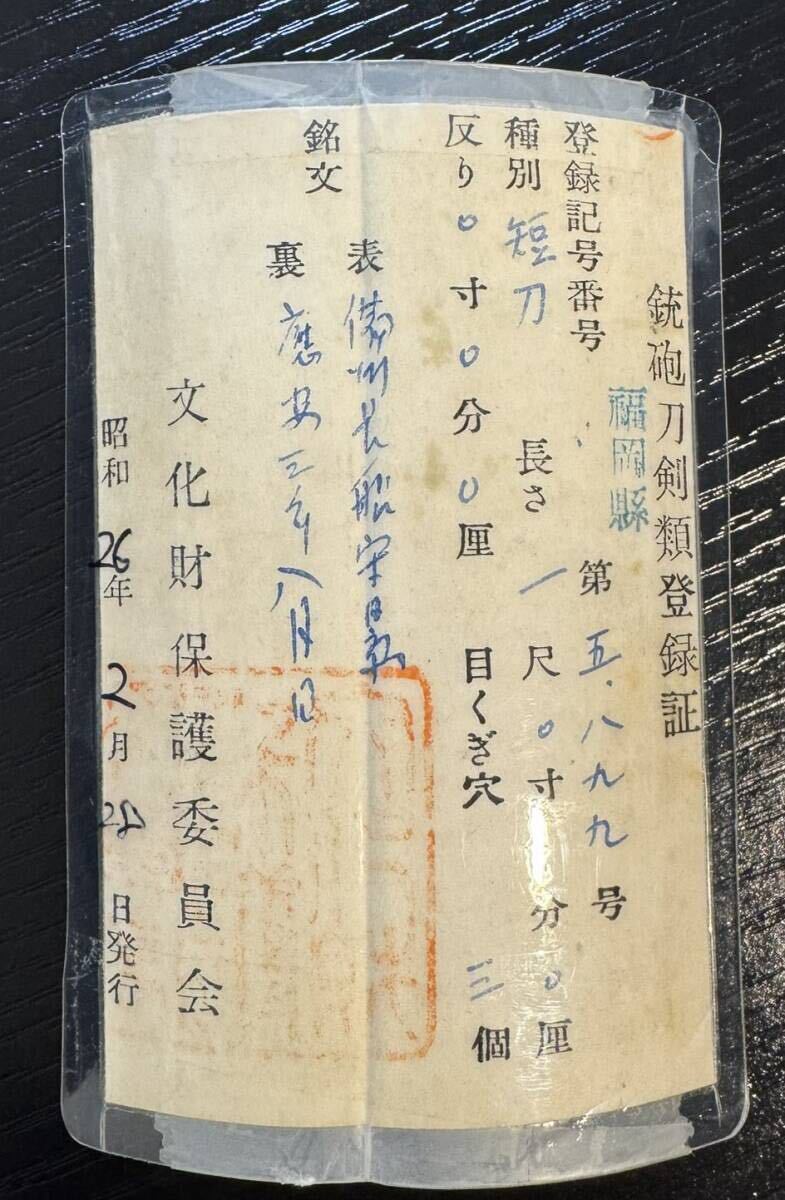 銃砲刀剣類登録証
登録記号番号 福岡縣 第五、八九九号
種別 短刀 長さ 一尺〇寸 分〇厘
反り〇寸〇分〇厘 目くぎ穴 三個
銘文 表 備州長船
裏 應安三年八月日
文化財保護委員会
昭和26年2月28日発行